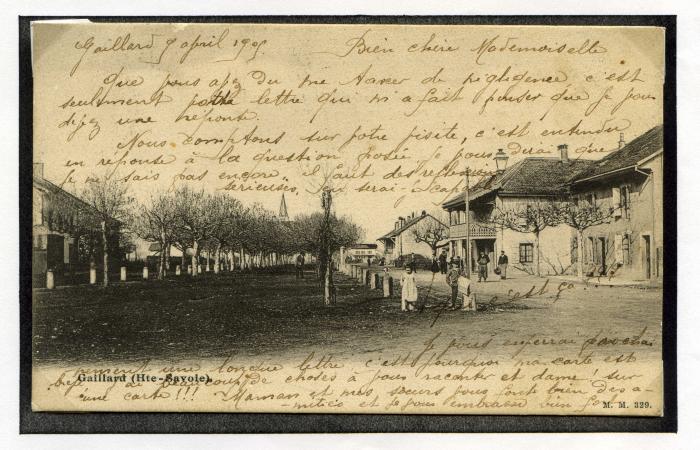 Gaillard 9 april 190
Bien chère Mademoiselle
Que vous avez du me taxer de négligence c'est
seulement votre lettre qui m'a fait penser que je vous
devez une reponse.
Nous comptons sur votre visite, c'est entendu
en reponse à la question posée je vous dirai que
je ne sais pas encore, il faut des reflexions
serieuses, en serai-je capable
c'est ça
Je vous enverrai prochai
nement une longue lettre c'est pourquoi ma carte est
beaucoup de choses à vous raconter et dame! sur
une carte!!! Maman et mes sœurs vous font bien des a-
-mitiés et je vous embrasse bien fort
Gaillard (Hte-Savoie)
M. M. 329.